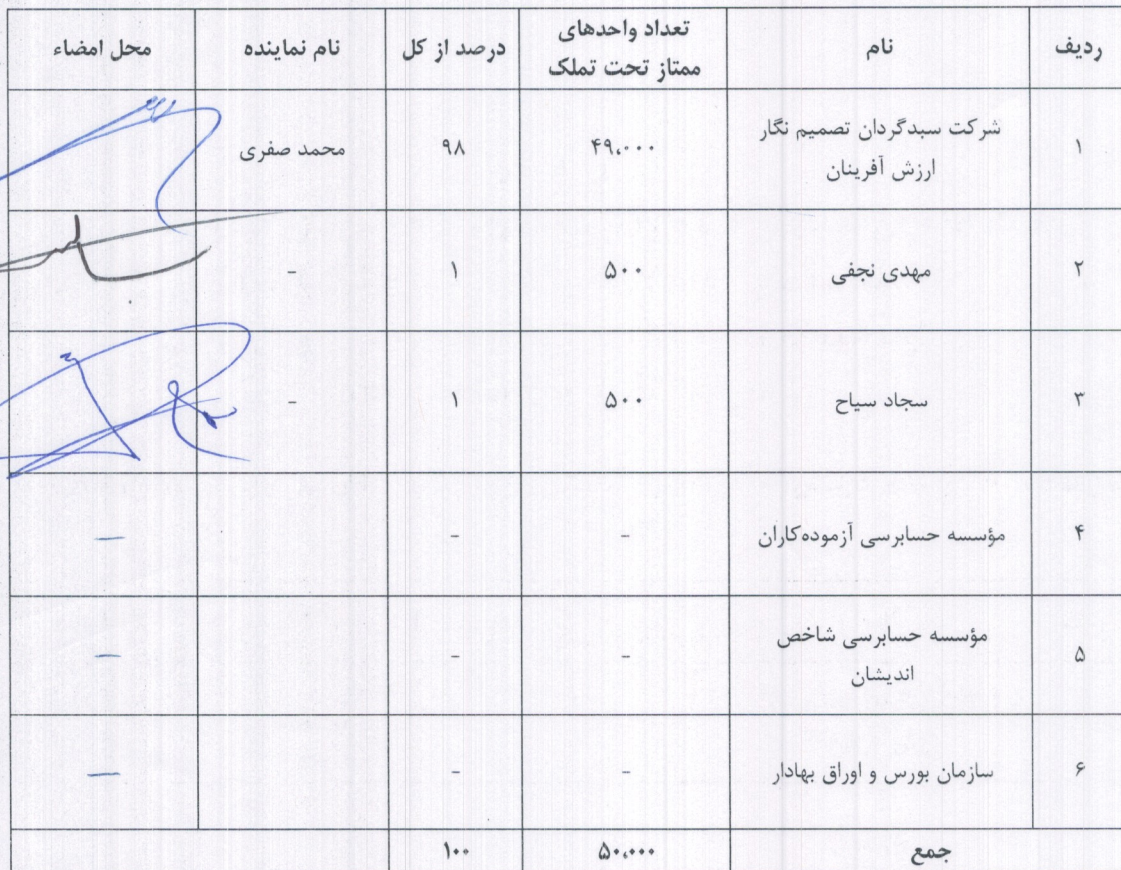 ردیف
نام
تعداد واحدهای
ممتاز تحت تملک
درصد از کل
نام نماینده
محل امضاء
۱
شرکت سبدگردان تصمیم نگار
ارزش آفرینان
۴۹،۰۰۰
۹۸
محمد صفری
۲
مهدی نجفی
۵۰۰
۱
-
۳
سجاد سیاح
۵۰۰
۱
-
۴
مؤسسه حسابرسی آزموده‌کاران
-
-
—
۵
مؤسسه حسابرسی شاخص
اندیشان
-
-
—
۶
سازمان بورس و اوراق بهادار
-
-
—
جمع
۵۰،۰۰۰
۱۰۰